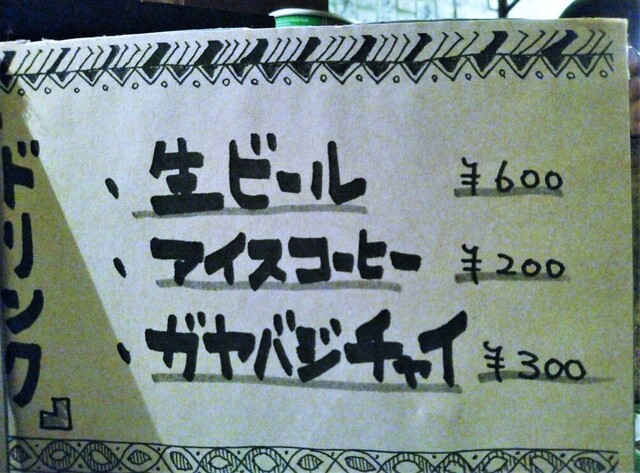 ドリンク
・生ビール ¥600
・アイスコーヒー ¥200
・ガヤバジチャイ ¥300